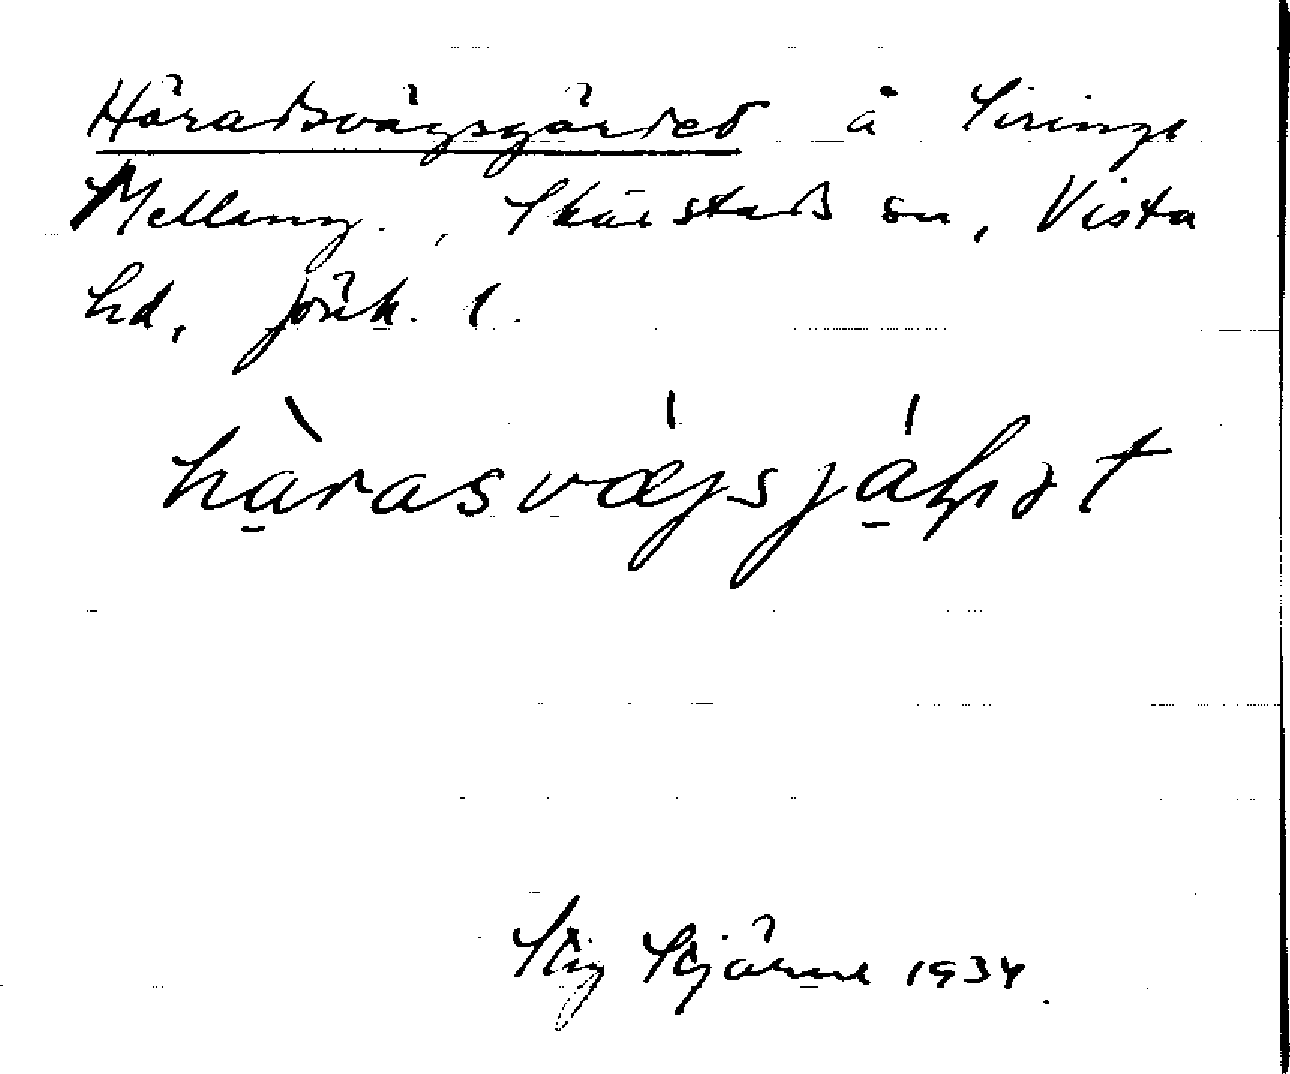 Häradsvägsgärdet å Siringe
Melleng., Skärstads sn, Vista
hd, Jönk. l.
hàrasvǽjsjáḷṛət
Stig Stjärne 1934.